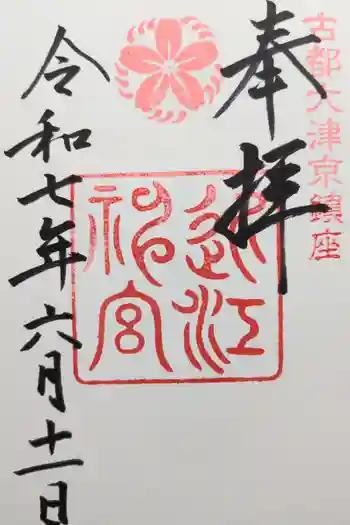 古都大津京鎮座
奉拝
近江
神宮
令和七年六月十一日